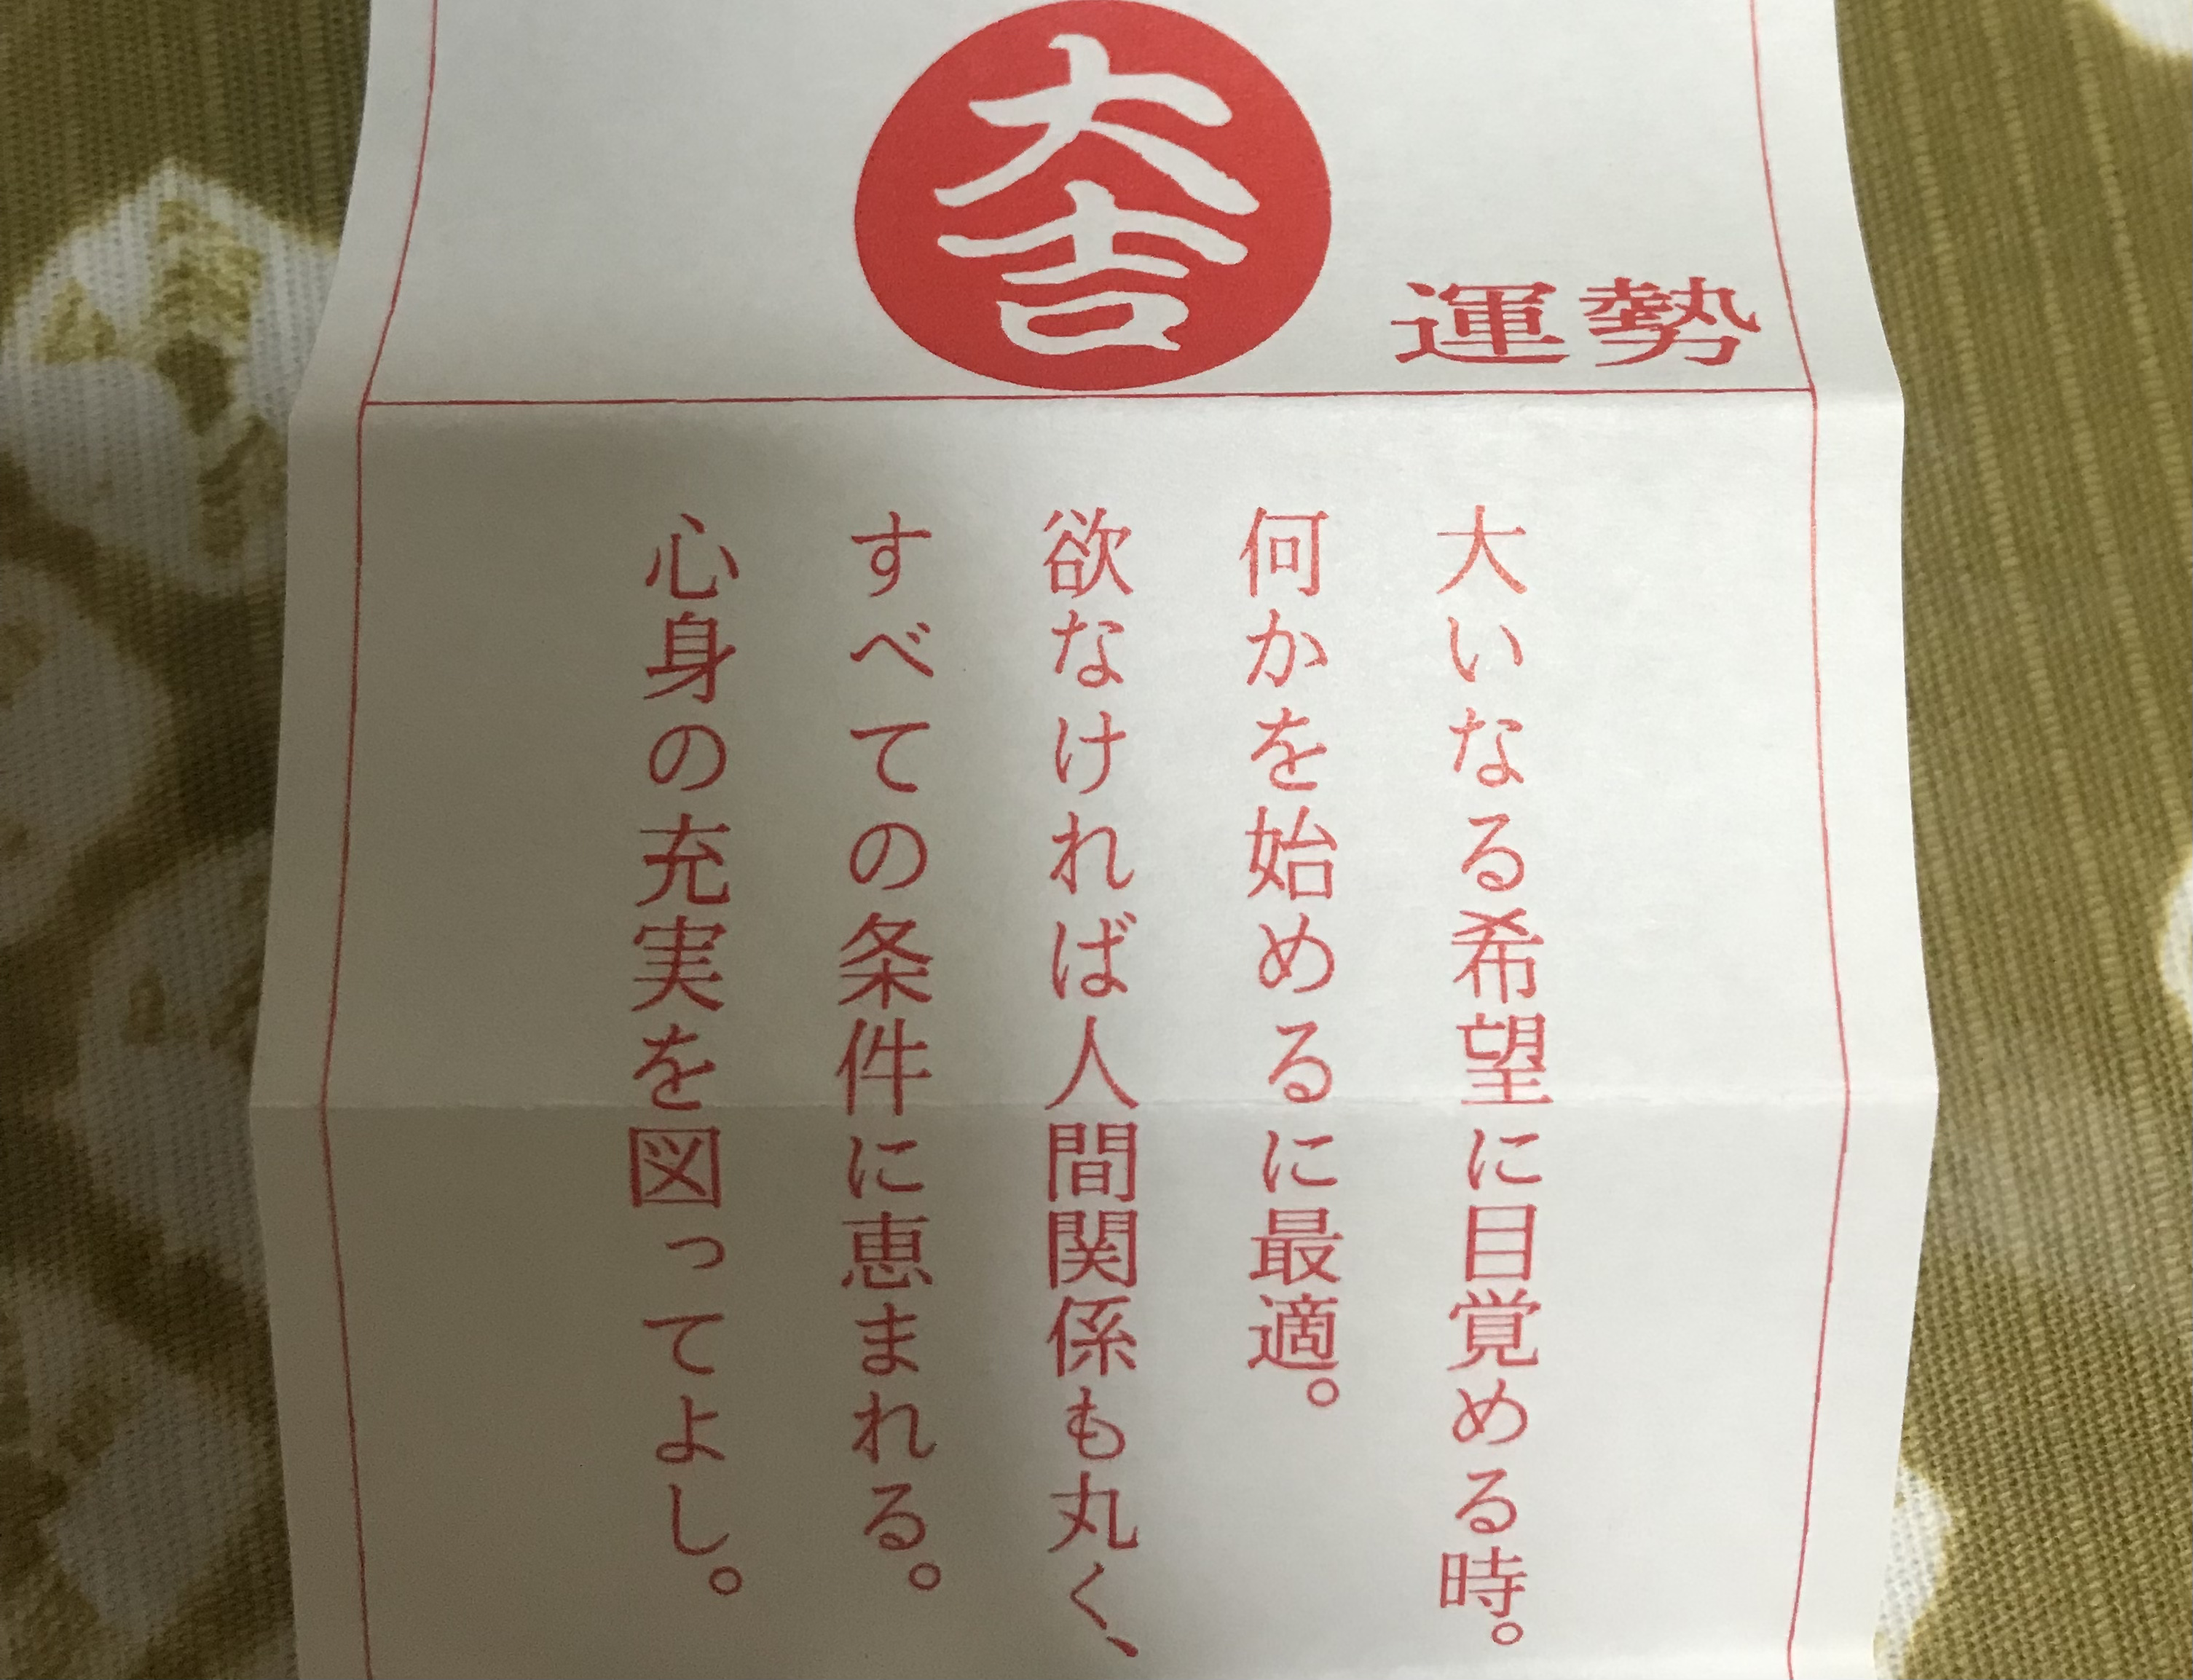 運勢
大吉
大いなる希望に目覚める時。
何かを始めるに最適。
欲なければ人間関係も丸く、
すべての条件に恵まれる。
心身の充実を図ってよし。